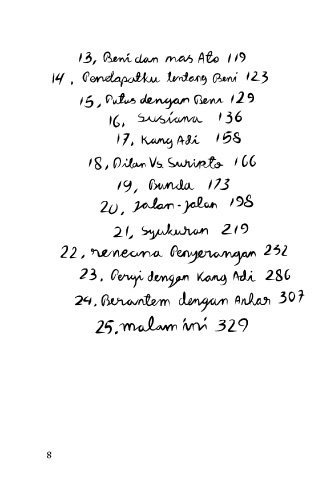 13, Beni dan mas Ato 119
14, Pendapatku tentang Beni 123
15, Putus dengan Beni 129
16, Susiana 136
17, Kang Adi 158
18, Dilan Vs Suripto 166
19, Bunda 173
20, Jalan-jalan 198
21, Syukuran 219
22, rencana Penyerangan 252
23. Pergi dengan Kang Adi 286
24. Berantem dengan Anhar 307
25. malam ini 329
8